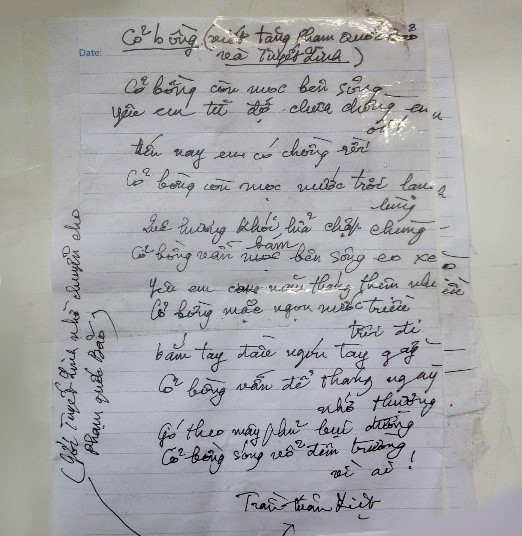 Cỏ bồng (viết tặng Phạm Quốc Bảo
và Tuyết Linh)
Date:
Cỏ bồng còn mọc bên sông
Yêu em từ độ chưa chồng em ơi!
đến nay em có chồng rồi
Cỏ bồng còn mọc nước trôi lạnh lùng
Quê hương khói lửa chập chùng
Cỏ bồng vẫn bám bên sông eo xèo
Yêu em năm tháng thêm nhiều
Cỏ bồng mặc ngọn nước triều trôi đi
bấm tay đầu ngón tay gầy
Cỏ bồng vẫn để tháng ngày nhớ thương
Gót theo mây phủ bụi đường
Cỏ bồng sóng vỗ đêm trường vì ai!
Trần Tuấn Kiệt
(Gởi Tuyết Linh nhờ chuyển cho
Phạm Quốc Bảo)